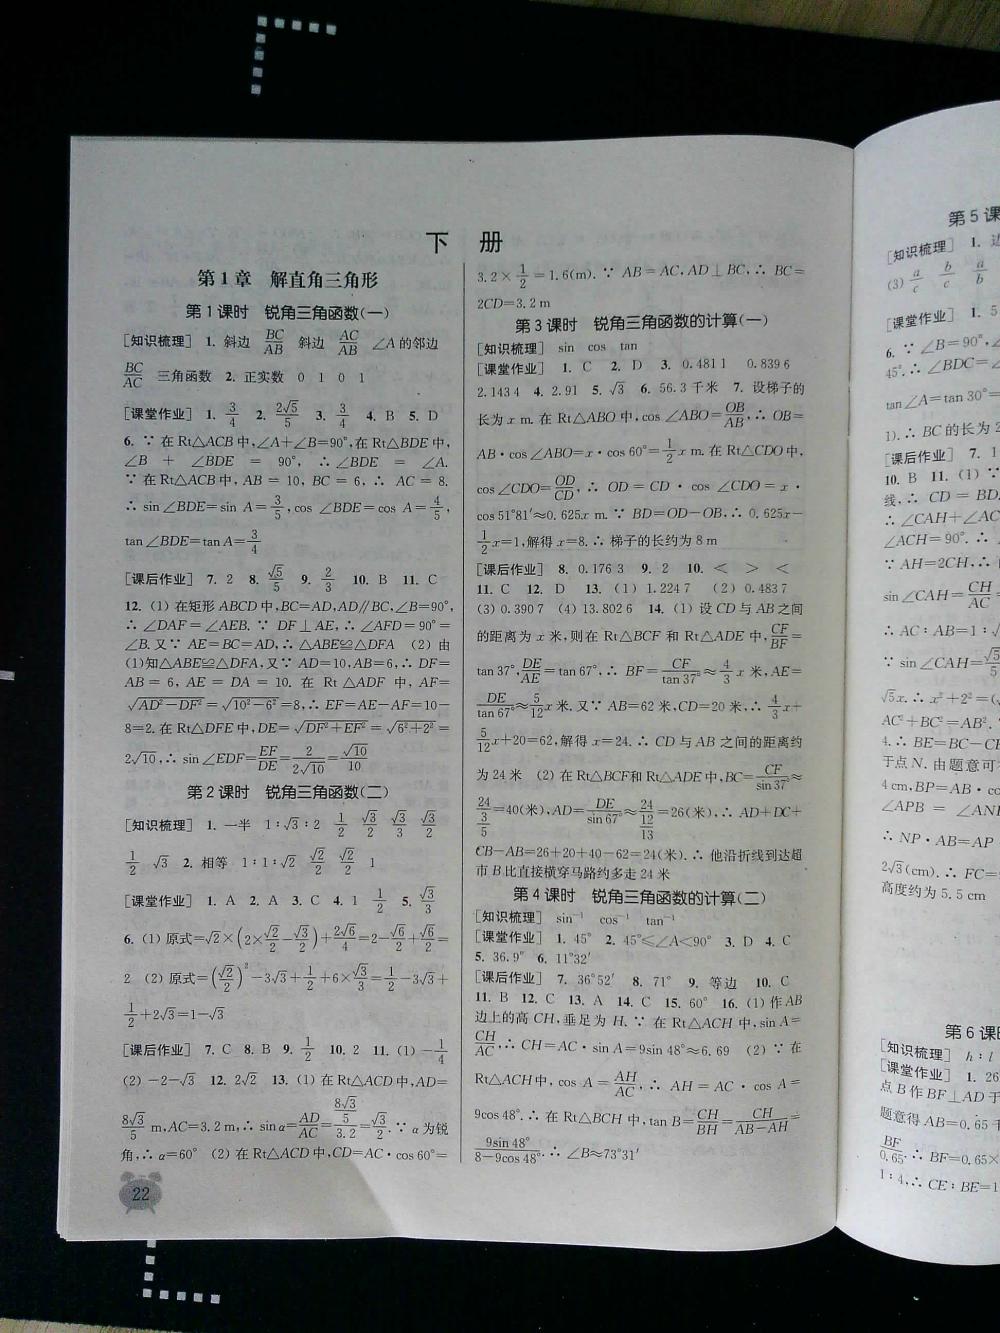 下 册
第1章 解直角三角形
第1课时 锐角三角函数(一)
[知识梳理] 1. 斜边 BC/AB 斜边 AC/AB ∠A的邻边
BC/AC 三角函数 2. 正实数 0 1 0 1
[课堂作业] 1. 3/4 2. 2√5/5 3. 3/4 4. B 5. D
6. ∵ 在Rt△ACB中,∠A+∠B=90°,在Rt△BDE中,
∠B + ∠BDE = 90°, ∴∠BDE = ∠A.
∵ 在Rt△ACB中, AB = 10, BC = 6, ∴ AC = 8.
∴ sin∠BDE=sin A=3/5, cos ∠BDE=cos A=4/5,
tan∠BDE=tan A=3/4
[课后作业] 7. 2 8. √5/5 9. 2/3 10. B 11. C
12. (1) 在矩形ABCD中,BC=AD,AD∥BC,∠B=90°,
∴ ∠DAF = ∠AEB. ∵ DF⊥AE, ∴∠AFD = 90° =
∠B. 又∵ AE=BC=AD,∴ △ABE≌△DFA (2) 由
(1)知△ABE≌△DFA,又∵ AD=10,AB=6,∴ DF=
AB = 6, AE = DA = 10. 在 Rt △ADF 中, AF=
√(AD²−DF²)=√(10²−6²)=8,∴ EF=AE−AF=10−
8=2. 在Rt△DFE中,DE=√(DF²+EF²)=√(6²+2²)=
2√10,∴ sin∠EDF=EF/DE=2/(2√10)=√10/10
第2课时 锐角三角函数(二)
[知识梳理] 1. 一半 1∶√3∶2 1/2 √3/2 √3/3 √3/2
1/2 √3 2. 相等 1∶1∶√2 √2/2 √2/2 1
[课堂作业] 1. A 2. A 3. C 4. 1 1/2 5. √3/3
6. (1) 原式=√2×(2×√2/2−√3/2)+2√6/4=2−√6/2+√6/2=
2 (2) 原式=(√2/2)²−3√3+1/2+6×√3/3=1/2−3√3+
1/2+2√3=1−√3
[课后作业] 7. C 8. B 9. 1/2 10. 2 11. (1) −1/4
(2) −2−√3 12. 2√2 13. (1) 在Rt△ACD中,AD=
8√3/5 m,AC=3.2 m,∴ sin α=AD/AC=(8√3/5)/3.2=√3/2. ∵ α为锐
角,∴ α=60° (2) 在Rt△ACD中,CD=AC·cos 60°=
22
3.2×1/2=1.6(m). ∵ AB=AC,AD⊥BC,∴ BC=
2CD=3.2 m
第3课时 锐角三角函数的计算(一)
[知识梳理] sin cos tan
[课堂作业] 1. C 2. D 3. 0.481 1 0.839 6
2.143 4 4. 2.91 5. √3 6. 56.3千米 7. 设梯子的
长为x m. 在Rt△ABO中,cos∠ABO=OB/AB,∴ OB=
AB·cos∠ABO=x·cos 60°=1/2 x m. 在Rt△CDO中,
cos∠CDO=OD/CD, ∴ OD = CD · cos ∠CDO = x ·
cos 51°81′≈0.625x m. ∵ BD=OD−OB,∴ 0.625x−
1/2 x=1,解得x=8. ∴ 梯子的长约为8 m
[课后作业] 8. 0.176 3 9. 2 10. < > <
11. C 12. D 13. (1) 1.224 7 (2) 0.483 7
(3) 0.390 7 (4) 13.802 6 14. (1) 设CD与AB之间
的距离为x米,则在Rt△BCF和Rt△ADE中,CF/BF=
tan 37°, DE/AE=tan 67°,∴ BF=CF/tan 37°≈4/3 x米,AE=
DE/tan 67°≈5/12 x米. 又∵ AB=62米,CD=20米,∴ 4/3 x+
5/12 x+20=62,解得x=24. ∴ CD与AB之间的距离约
为24米 (2) 在Rt△BCF和Rt△ADE中,BC=CF/sin 37°≈
24/(3/5)=40(米),AD=DE/sin 67°≈24/(12/13)=26(米),∴ AD+DC+
CB−AB=26+20+40−62=24(米). ∴ 他沿折线到达超
市B比直接横穿马路约多走24米
第4课时 锐角三角函数的计算(二)
[知识梳理] sin⁻¹ cos⁻¹ tan⁻¹
[课堂作业] 1. 45° 2. 45°≤∠A<90° 3. D 4. C
5. 36.9° 6. 11°32′
[课后作业] 7. 36°52′ 8. 71° 9. 等边 10. C
11. B 12. C 13. A 14. C 15. 60° 16. (1) 作AB
边上的高CH,垂足为H. ∵ 在Rt△ACH中,sin A=
CH/AC,∴ CH=AC·sin A=9sin 48°≈6.69 (2) ∵ 在
Rt△ACH中, cos A = AH/AC, ∴ AH = AC · cos A =
9cos 48°. ∴ 在Rt△BCH中,tan B=CH/BH=CH/(AB−AH)=
9sin 48°/(8−9cos 48°). ∴ ∠B≈73°31′
第5课
[知识梳理] 1.
(3) a/c b/c a/b
[课堂作业] 1. 5
6. ∵ ∠B=90°,
45°. ∴ ∠BDC=
tan∠A=tan 30°=
1). ∴ BC的长为2
[课后作业] 7. 1
10. B 11. (1) ∵
线,∴ CD = BD
∴ ∠CAH+∠AC
∠ACH=90°. ∴
∵ AH=2CH,∴
sin∠CAH=CH/AC
∴ AC∶AB=1∶
∵ sin∠CAH=√5/5
√5x. ∴ x²+2²=(
AC²+BC²=AB².
4. ∴ BE=BC−C
于点N. 由题意可
4 cm,BP=AB·co
∠APB = ∠AN
∴ NP·AB=AP
2√3(cm). ∴ FC=
高度约为5.5 cm
第6课时
[知识梳理] h∶l
[课堂作业] 1. 26
点B作BF⊥AD于
题意得AB=0.65千
BF/0.65. ∴ BF=0.65×
1∶4,∴ CE∶BE=1